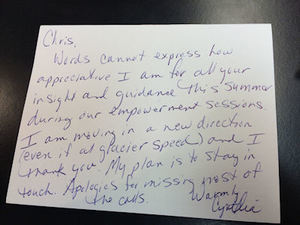 Chris,
Words cannot express how
appreciative I am for all your
insight and guidance this summer
during our empowerment sessions.
I am moving in a new direction
(even if at glacier speed) and I
thank you. My plan is to stay in
touch. Apologies for missing most of
the calls. Warmly
Cynthia